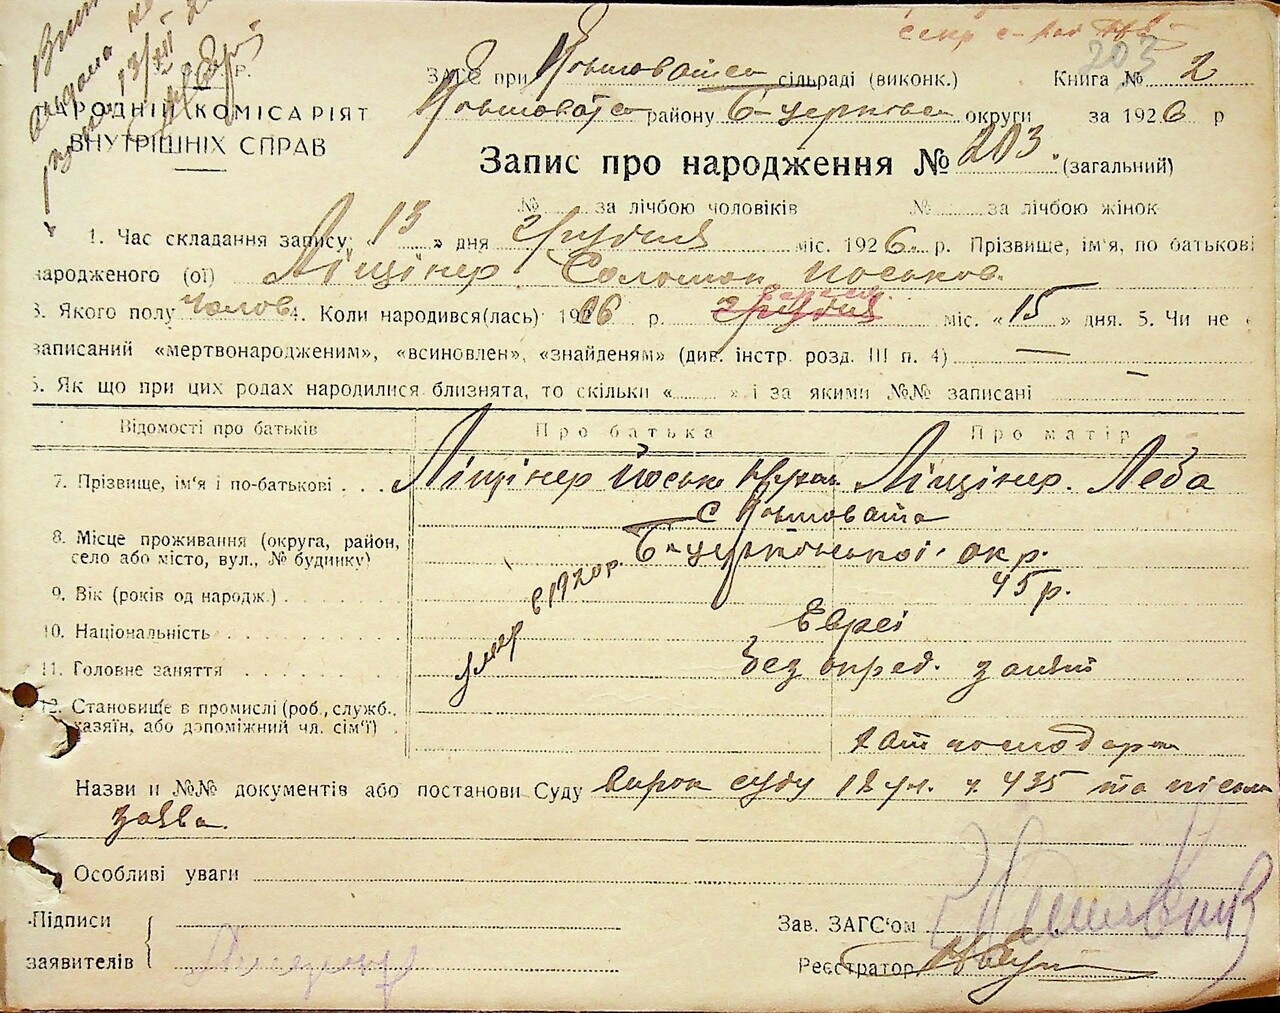 203
ЗАГС при Ковшовата сільраді (виконк.) Книга № 2
НАРОДНІЙ КОМІСАРІЯТ
Ковшовата району Б-церков округи за 1926 р
ВНУТРІШНІХ СПРАВ
Запис про народження № 203. (загальний)
№ за лічбою чоловіків № за лічбою жінок
1. Час складання запису: 13 » дня грудня міс. 1926. р. Прізвище, ім'я, по батькові
народженого (ої) Ліщінер Соломон Йоськов.
3. Якого полу чолов. 4. Коли народився(лась) 19 р. грудня міс. «15» дня. 5. Чи не є
записаний «мертвонародженим», «всиновлен», «знайденям» (див. інстр. розд. III п. 4) —
6. Як що при цих родах народилися близнята, то скільки « » і за якими №№ записані —
Відомості про батьків Про батька Про матір
7. Прізвище, ім'я і по-батькові . . . Ліщінер Йосько Ліщінер Леба
с Ковшовата
8. Місце проживання (округа, район,
село або місто, вул., № будинку) Б-церківської окр.
9. Вік (років од народж.) . умер в 1920 р. 45 р.
10. Національність Євреї
11. Головне заняття Без опред. занят
12. Становище в промислі (роб., служб.,
хазяїн, або допоміжний чл. сім'ї) господар
Назви и №№ документів або постанови Суду Вирок суду 18 уч. ч 435 та
заява.
Особливі уваги
Підписи
заявителів
Зав. ЗАГС'ом
Реєстратор